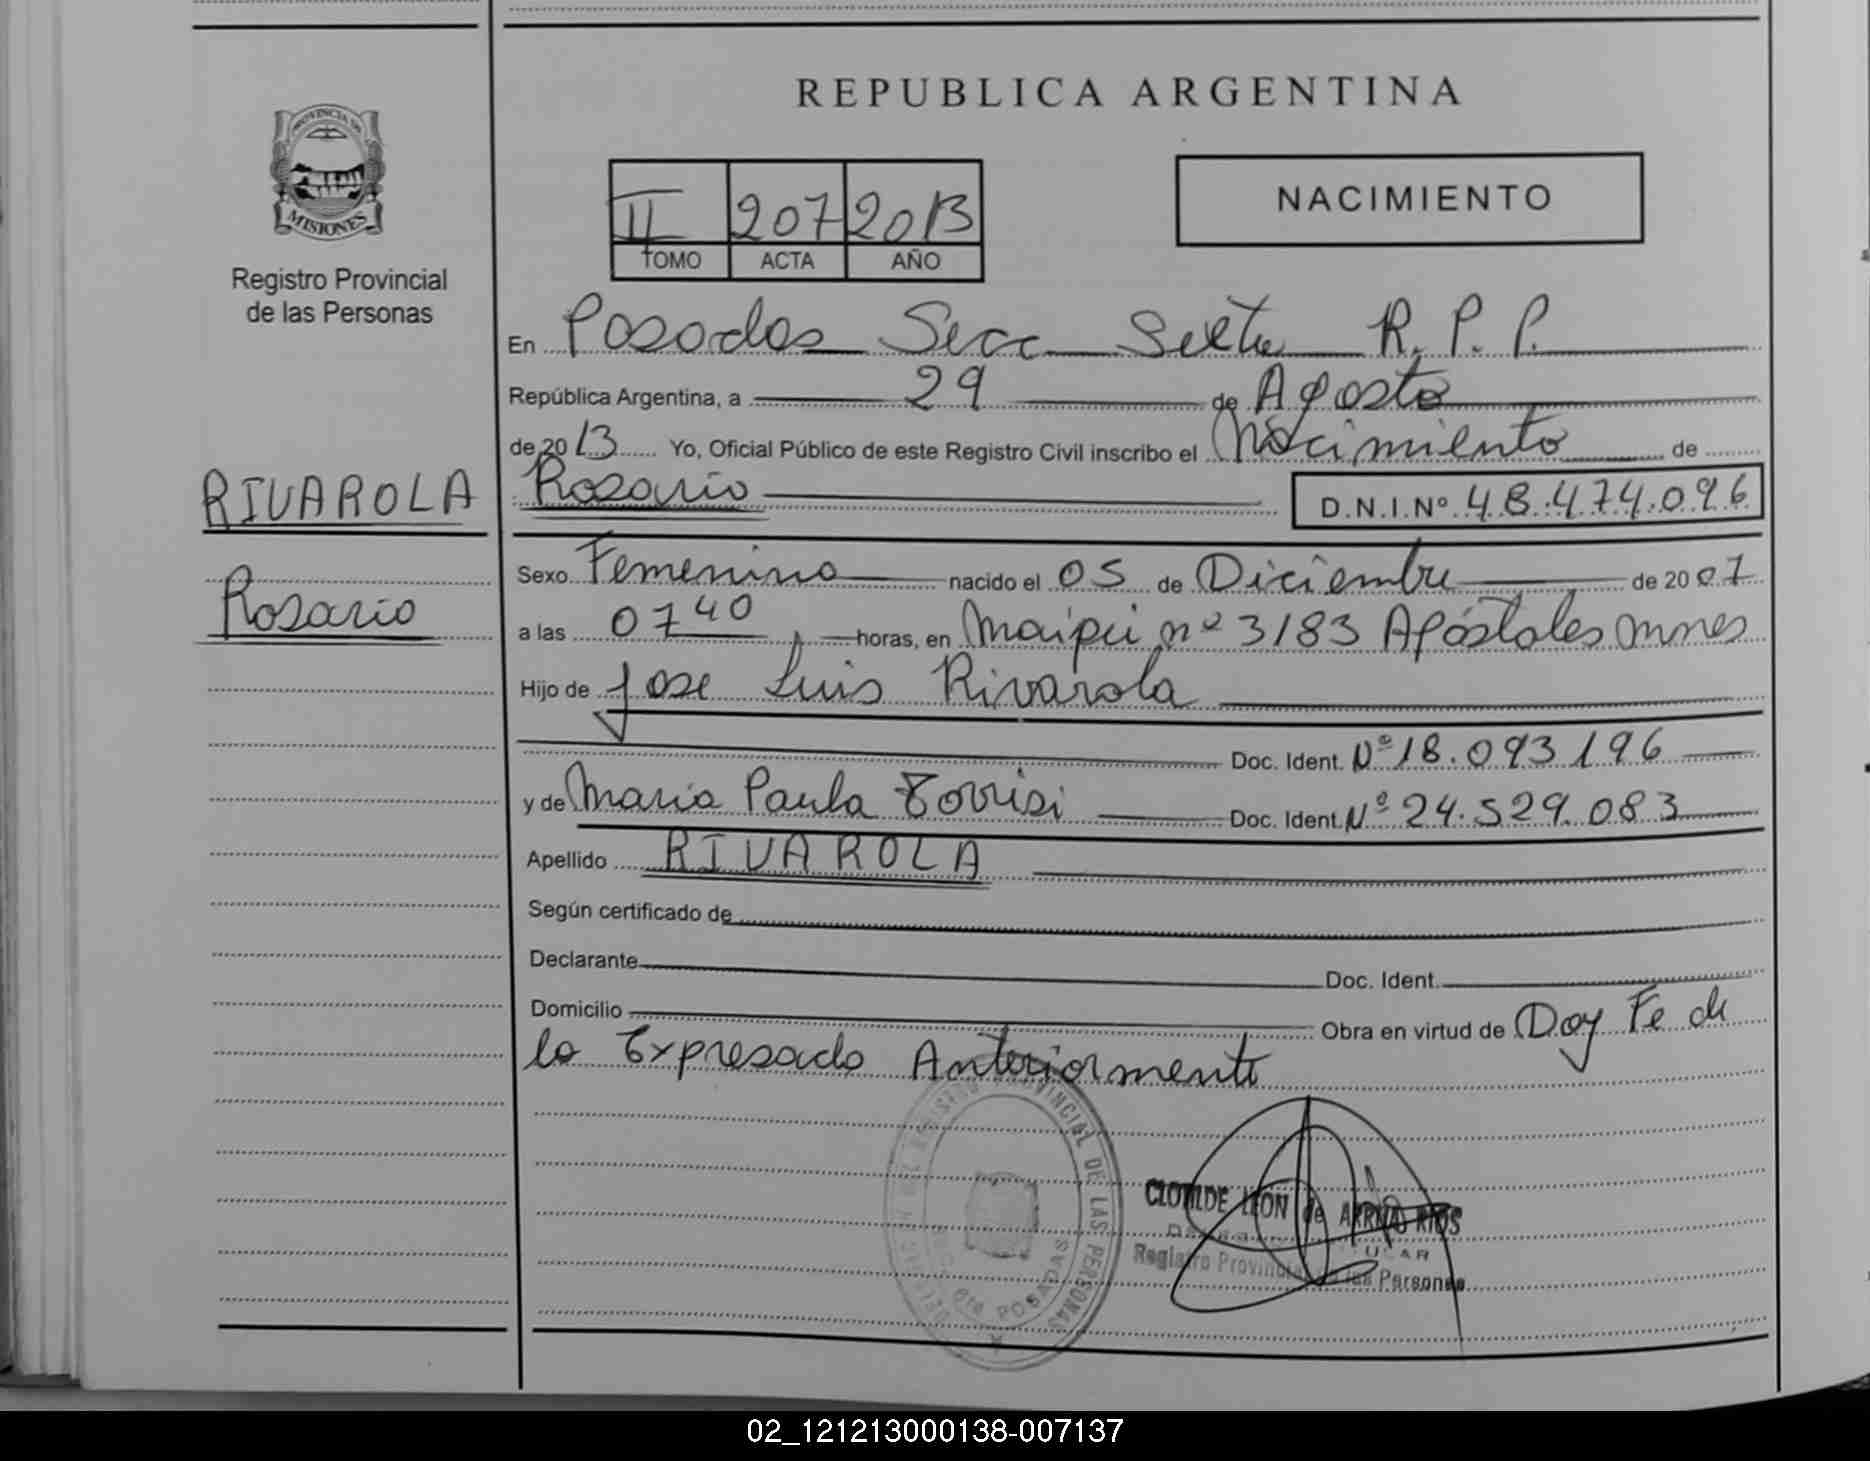 REPUBLICA ARGENTINA
PROVINCIA DE
MISIONES
Registro Provincial
de las Personas
II 207 2013
TOMO ACTA AÑO
NACIMIENTO
En Posadas Secc Sexta R.P.P.
República Argentina, a 29 de Agosto
de 20 13 Yo, Oficial Público de este Registro Civil inscribo el Nacimiento de
RIVAROLA
Rosario D.N.I.Nº 48.474.096
Rosario
Sexo Femenino nacido el 05 de Diciembre de 20 07
a las 07 40 horas, en Maipú nº 3183 Apóstoles Mnes
Hijo de Jose Luis Rivarola
Doc. Ident. Nº 18.093196
y de Maria Paula Torrisi Doc. Ident. Nº 24.529.083
Apellido RIVAROLA
Según certificado de
Declarante Doc. Ident.
Domicilio Obra en virtud de Doy Fe de
lo Expresado Anteriormente
REGISTRO PROVINCIAL DE LAS PERSONAS
6ta POSADAS
CLOTILDE LEON de
Registro Provincial de las Personas
02_121213000138-007137